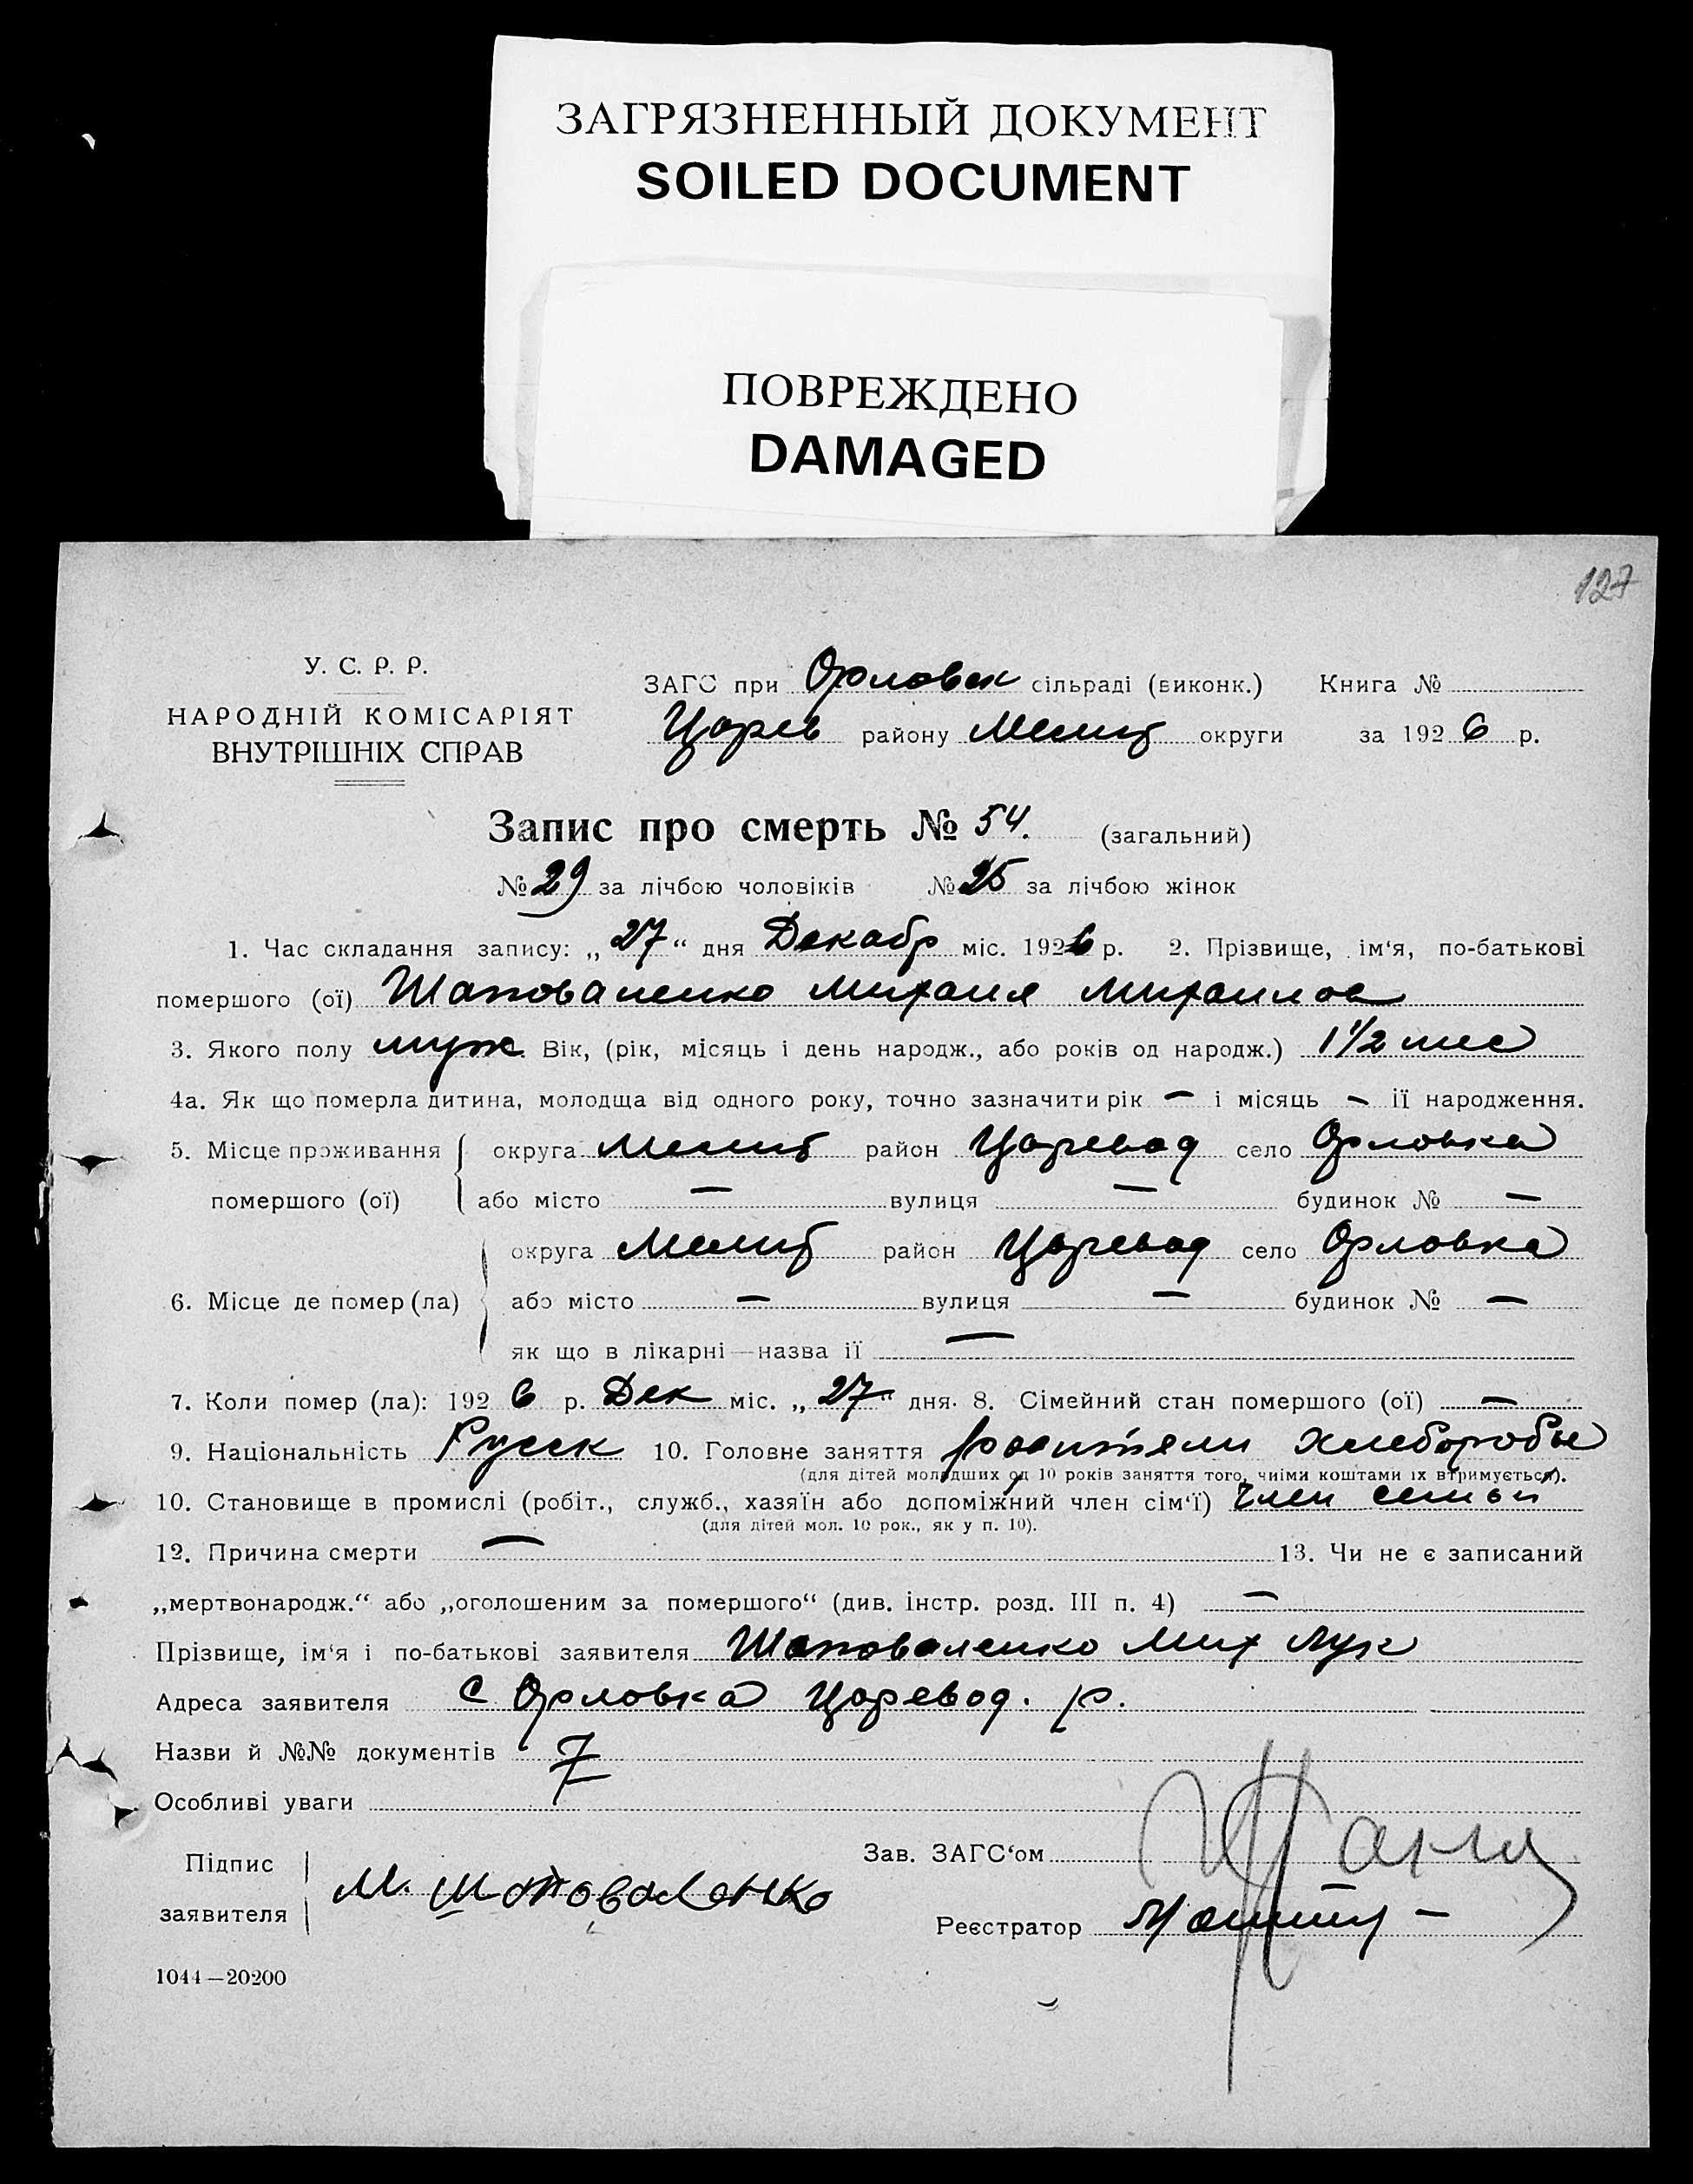 ЗАГРЯЗНЕННЫЙ ДОКУМЕНТ
SOILED DOCUMENT
ПОВРЕЖДЕНО
DAMAGED
127
У. С. Р. Р.
НАРОДНІЙ КОМІСАРІЯТ
ВНУТРІШНІХ СПРАВ
ЗАГС при Орловск сільраді (виконк.) Книга №
Царев району Мелит округи за 1926 р.
Запис про смерть № 54. (загальний)
№ 29 за лічбою чоловіків № 25 за лічбою жінок
1. Час складання запису: „27“ дня Декабр міс. 1926 р. 2. Прізвище, ім‘я, по-батькові
помершого (ої) Шаповаленко Михаил Михаилов
3. Якого полу муж. Вік, (рік, місяць і день народж., або років од народж.) 1 1/2 мес
4а. Як що померла дитина, молодща від одного року, точно зазначити рік — і місяць — її народження.
5. Місце проживання округа Мелит район Царевод село Орловка
помершого (ої) або місто — вулиця — будинок № —
округа Мелит район Царевод село Орловка
6. Місце де помер (ла) або місто — вулиця — будинок № —
як що в лікарні—назва її —
7. Коли помер (ла): 1926 р. Дек міс. „27“ дня. 8. Сімейний стан помершого (ої) —
9. Національність Русск 10. Головне заняття родители хлеборобы
(для дітей молодших од 10 років заняття того, чиїми коштами їх втримується).
10. Становище в промислі (робіт., служб., хазяїн або допоміжний член сім‘ї) Член семьи
(для дітей мол. 10 рок., як у п. 10).
12. Причина смерти — 13. Чи не є записаний
„мертвонародж.“ або „оголошеним за помершого“ (див. інстр. розд. III п. 4) —
Прізвище, ім‘я і по-батькові заявителя Шаповаленко Мих Лук
Адреса заявителя с Орловка Царевод. р.
Назви й №№ документів
Особливі уваги
Підпис
заявителя М. Шаповаленко
Зав. ЗАГС‘ом
Реєстратор
1044—20200